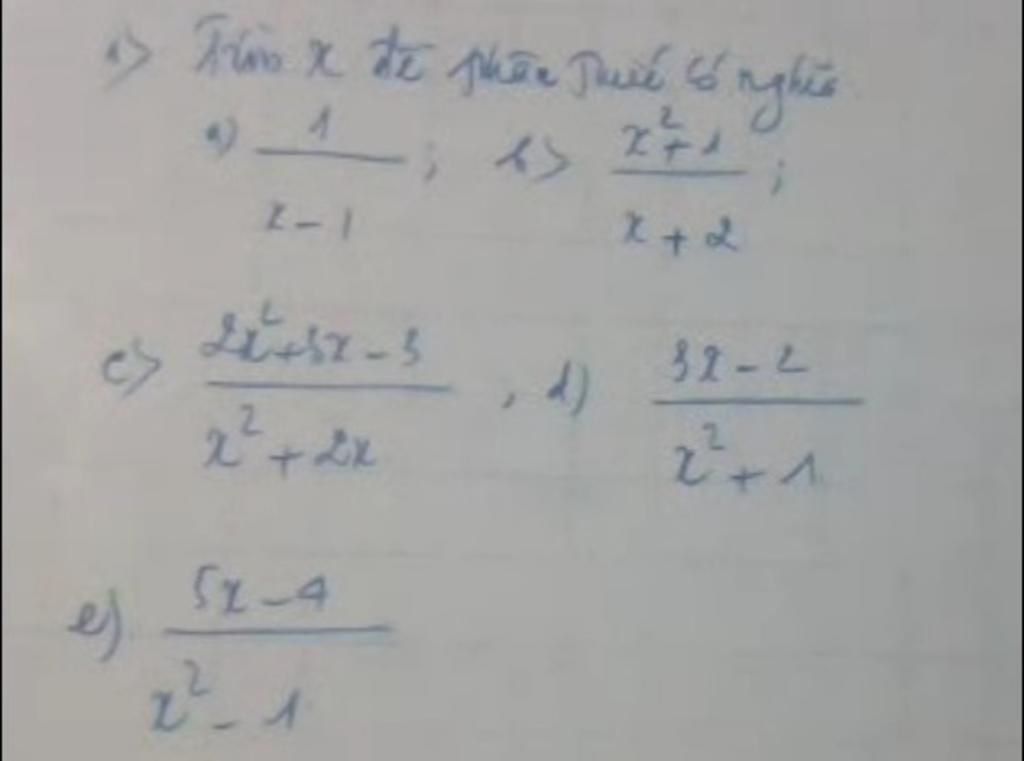 1> Tìm x để phân thức có nghĩa
a) 1/(x - 1) ; b> (x² + 1)/(x + 2) ;
c> (2x² + 3x - 3)/(x² + 2x) , d) (3x - 2)/(x² + 1)
e) (5x - 4)/(x² - 1)